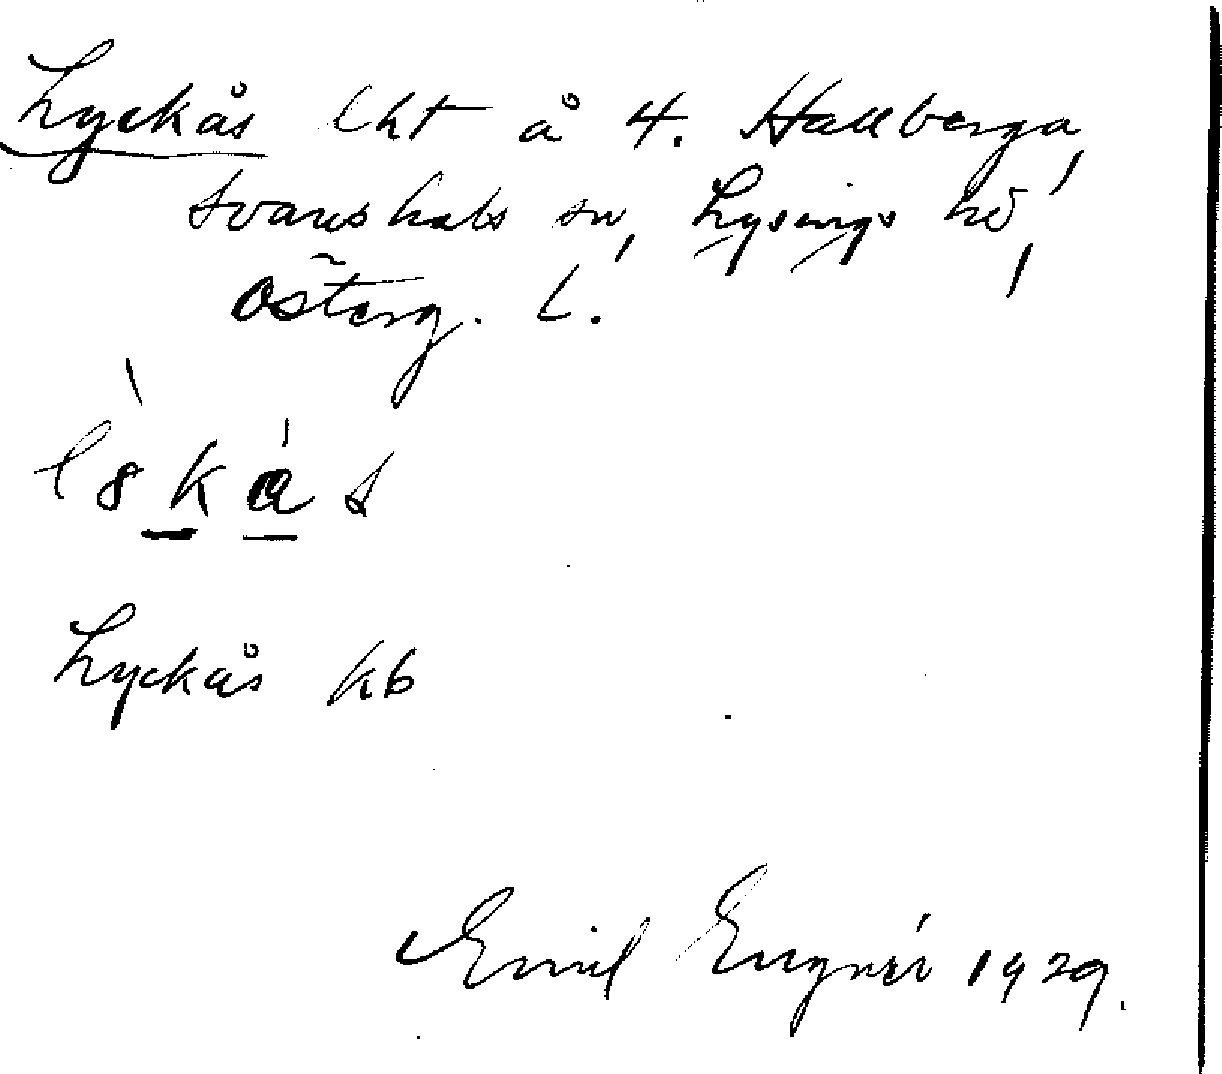 Lyckås lht å 4. Hallberga,
Svanshals sn, Lysings hd,
Österg. l.
l8kås
Lyckås kb
Emil Engnér 1929.